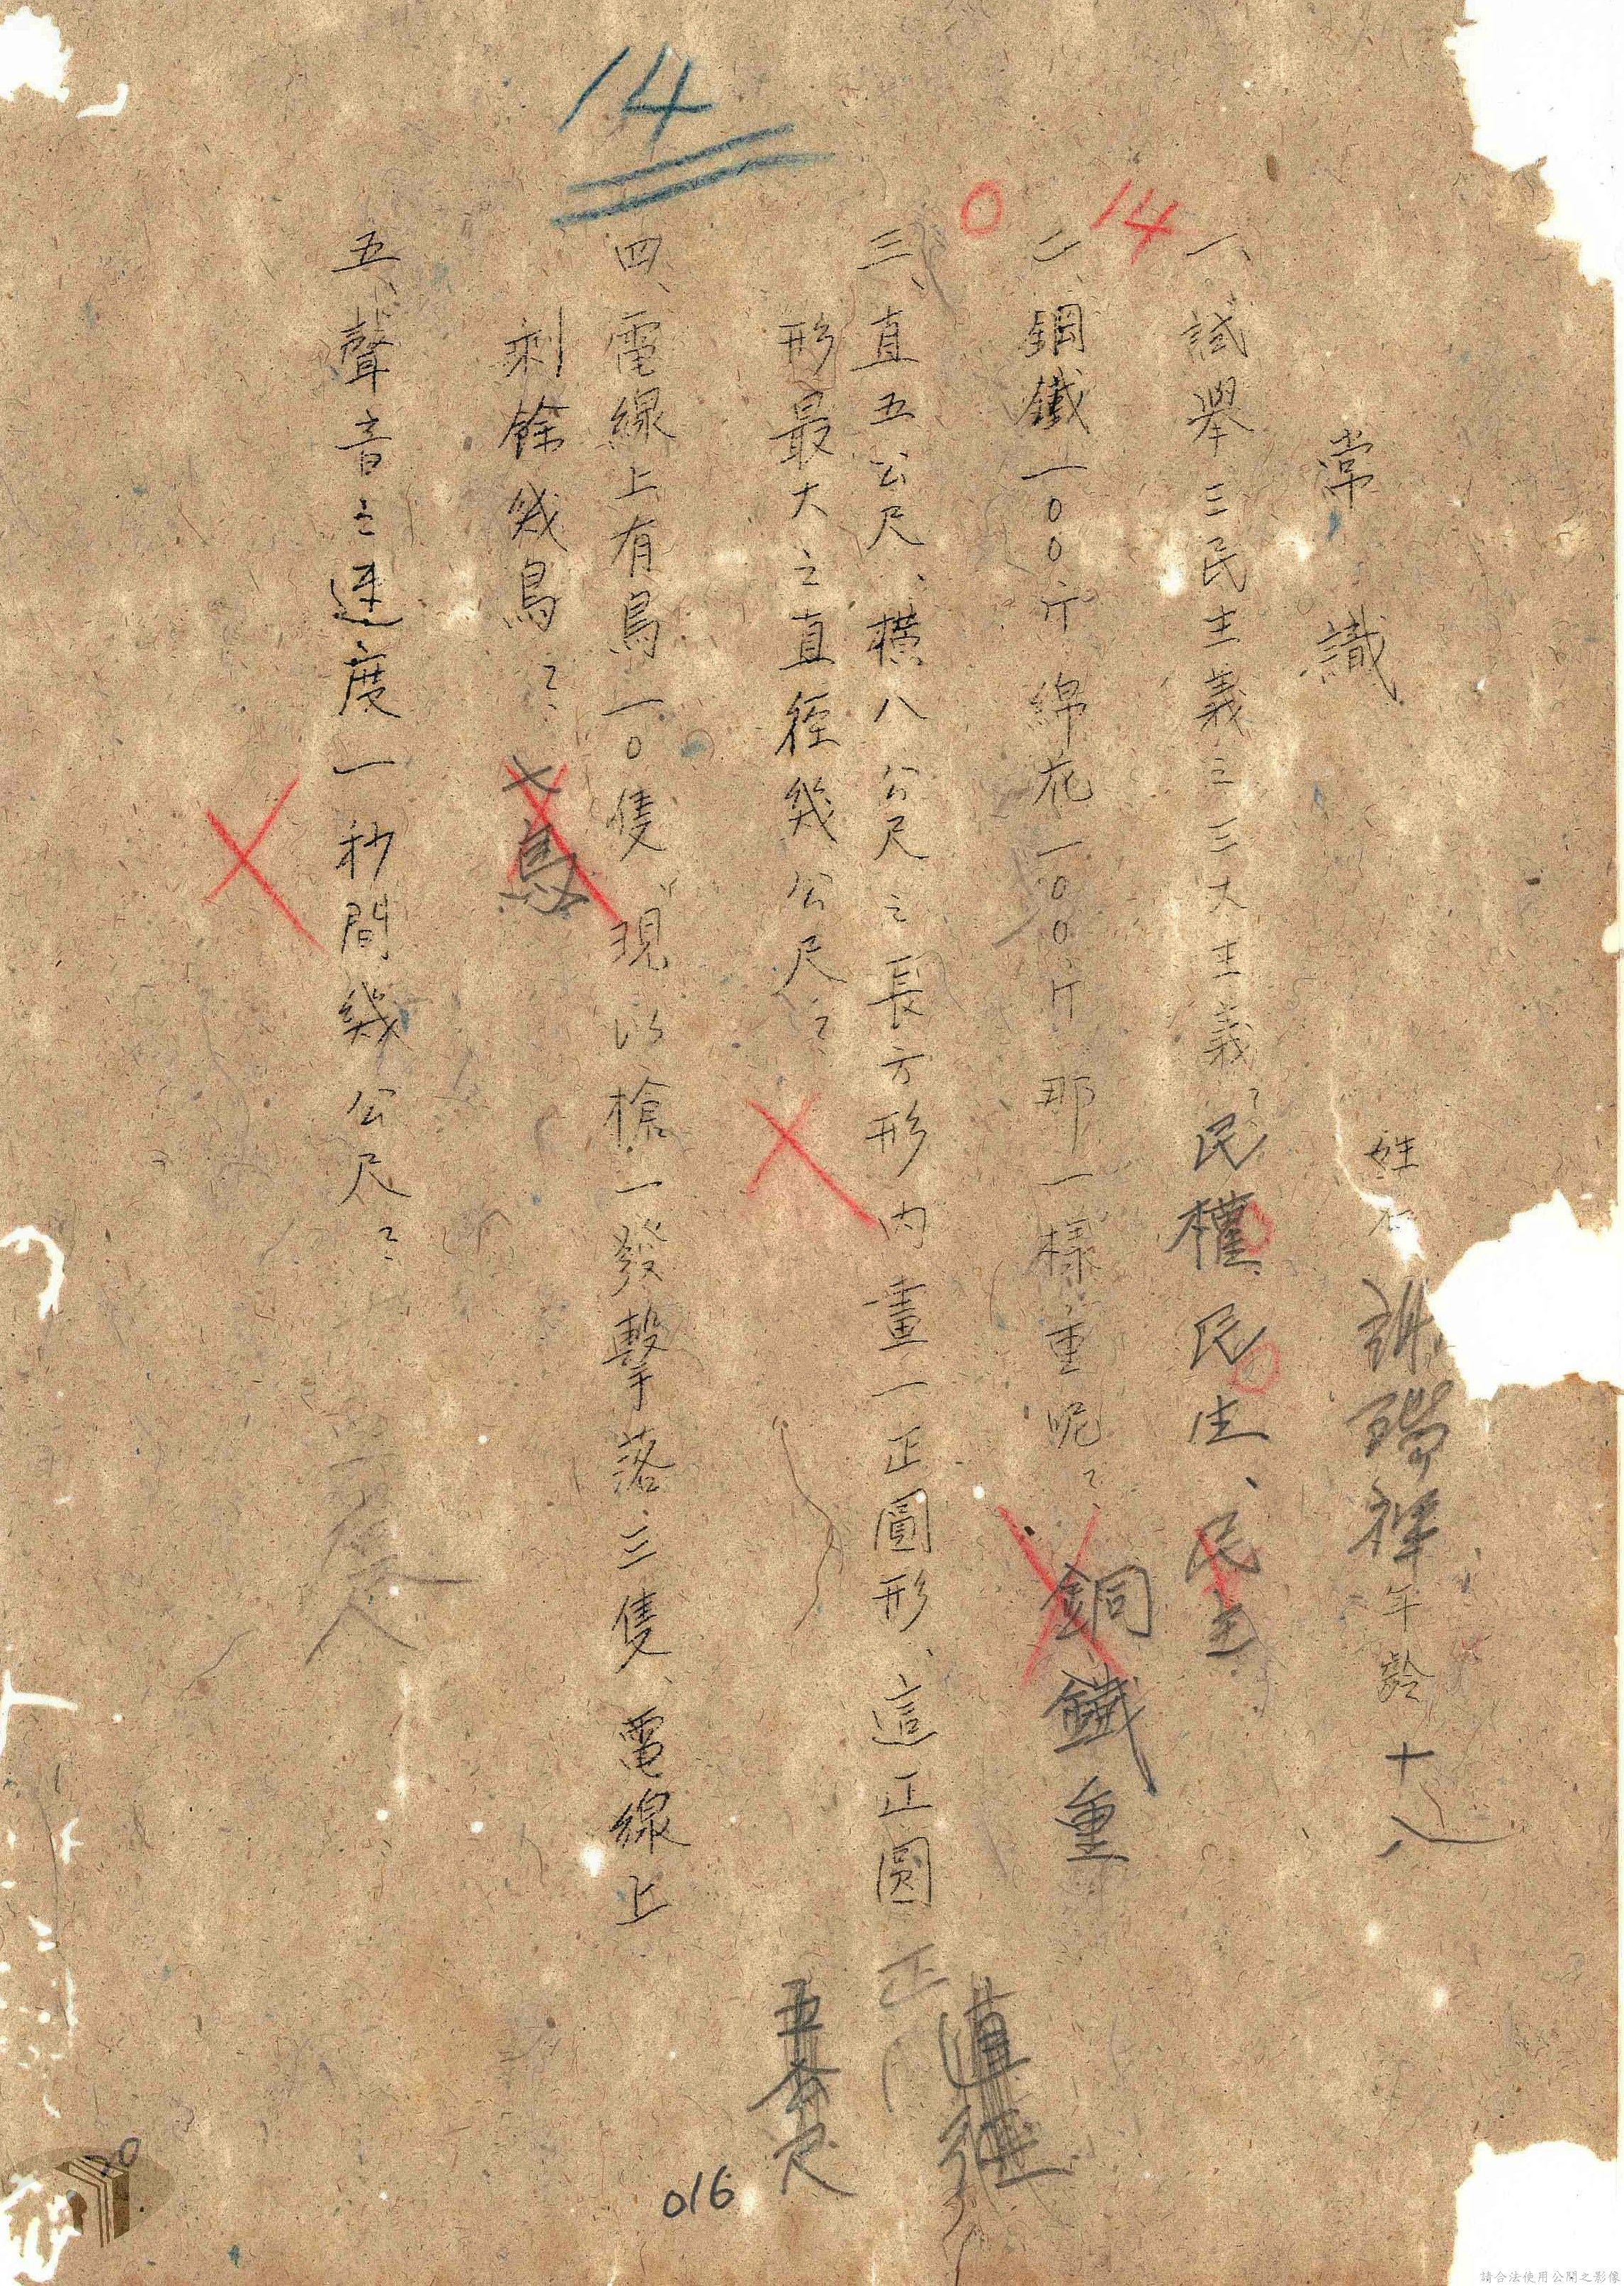 常識
姓名 瑞祥 年齡 十八
14
一、試舉三民主義之三大主義？民權、民生、民主
0
二、鋼鐵一００斤綿花一００斤那一樣重呢？銅鐵重
三、直五公尺、橫八公尺之長方形內畫一正圓形、這正圓
形最大之直徑幾公尺？
正
直徑
五公尺
14
四、電線上有鳥一０隻、現以槍一發擊落三隻、電線上
剩餘幾鳥？七鳥
五、聲音之速度一秒間幾公尺？
016
20
請合法使用公開之影像